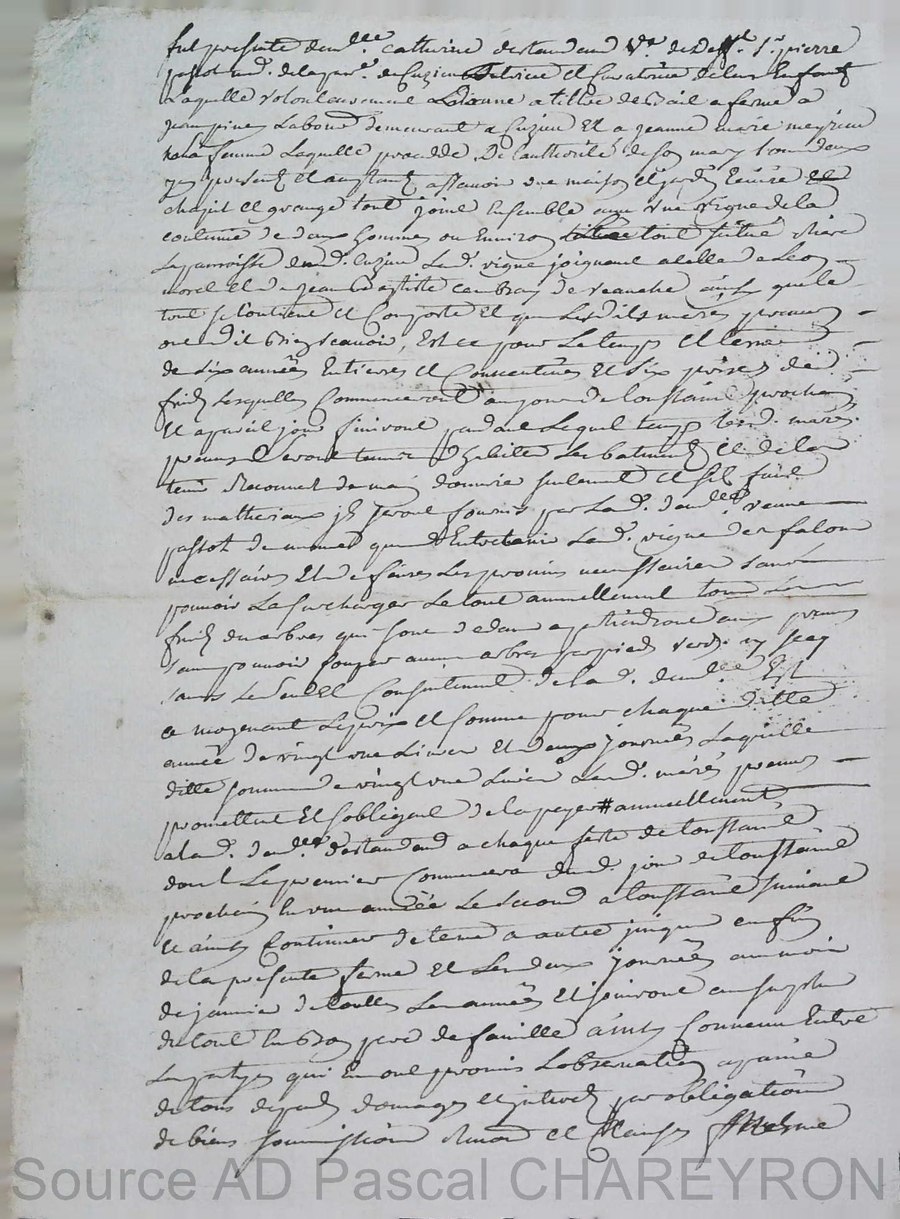 fut presente dem.lle catherine destandaud v.e de deff.t s.r pierre
passot m.d de la par.e de Cuzieu tutrice et Curatrice de leur Enfants
Laquelle volontairement a donné a tiltre de bail a ferme a
jean pine Laboud demeurant a Cuzieu et a jeanne marie meyrieu
sa femme Laquelle procedde De lauthorité de son mary tous deux
icy presents et acceptants assavoir une maison et jardin
chapit et grange tout joint Ensemble avec une vigne de la
contenue de deux hommes ou Environ le tout situé
La parroisse dud. cuzieu Lad. vigne joignant a celle de
morel et de jean baptiste de veauche ainsy que le
tout se Contient et Comporte Et que Lesd. mariés preneurs
ont dit bien scavoir, Est ce pour Le temps et terme
de six années Entieres et Consecutives et six prises de
fruits Lesquelles Commenceront au jour de toussaint prochain
Et a pareil jour finiront pendant Lequel temps lesd. mariés
preneurs seront tenus d'habiter Les batiments et de les
tenir de main d'œuvre seulement et sil faut
des matheriaux ils seront fournis par Lad. dem.lle veuve
passot de meme que d'Entretenir Lad. vigne
necessaires Et de faire Les provins necessaires sans
pouvoir La surcharger Le tout annuellement tous Les
fruits des arbres qui sont dedans apartiendront aux preneurs
sans pouvoir Couper aucun arbres par pied verd ny secq
sans Le Consentement de lad. dem.lle Est
ce moyenant Le prix et somme pour chaque ditte
année de vingt une Livres Et deux journées Laquelle
ditte somme de vingt une Livres Lesd. mariés preneurs
promettent Et sobligent de la payer # annuellement
a lad. dem.lle destandaud a chaque feste de toussaint
dont Le premier Commencera dud. jour de toussaint
prochain En une année Le second a toussaint suivant
Et ainsy Continuer de terme a autre jusque en fin
de la presente ferme Et Les deux journées au mois
de janvier de touttes Les années Et jouiront
de tout En bon pere de famille ainsy Convenu Entre
Les partyes qui En ont promis Lobservation a paine
de tous depends domages et jnterets par obligation
de biens soummission Renon et Clauses
Source AD Pascal CHAREYRON